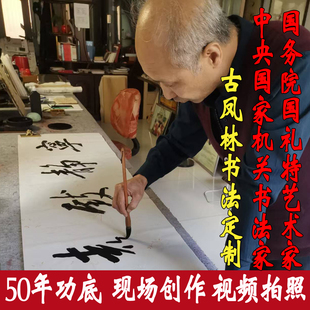 国务院国礼特艺术家
中央国家机关书法家
古凤林书法定制
寧静致
50年功底 现场创作 视频拍照